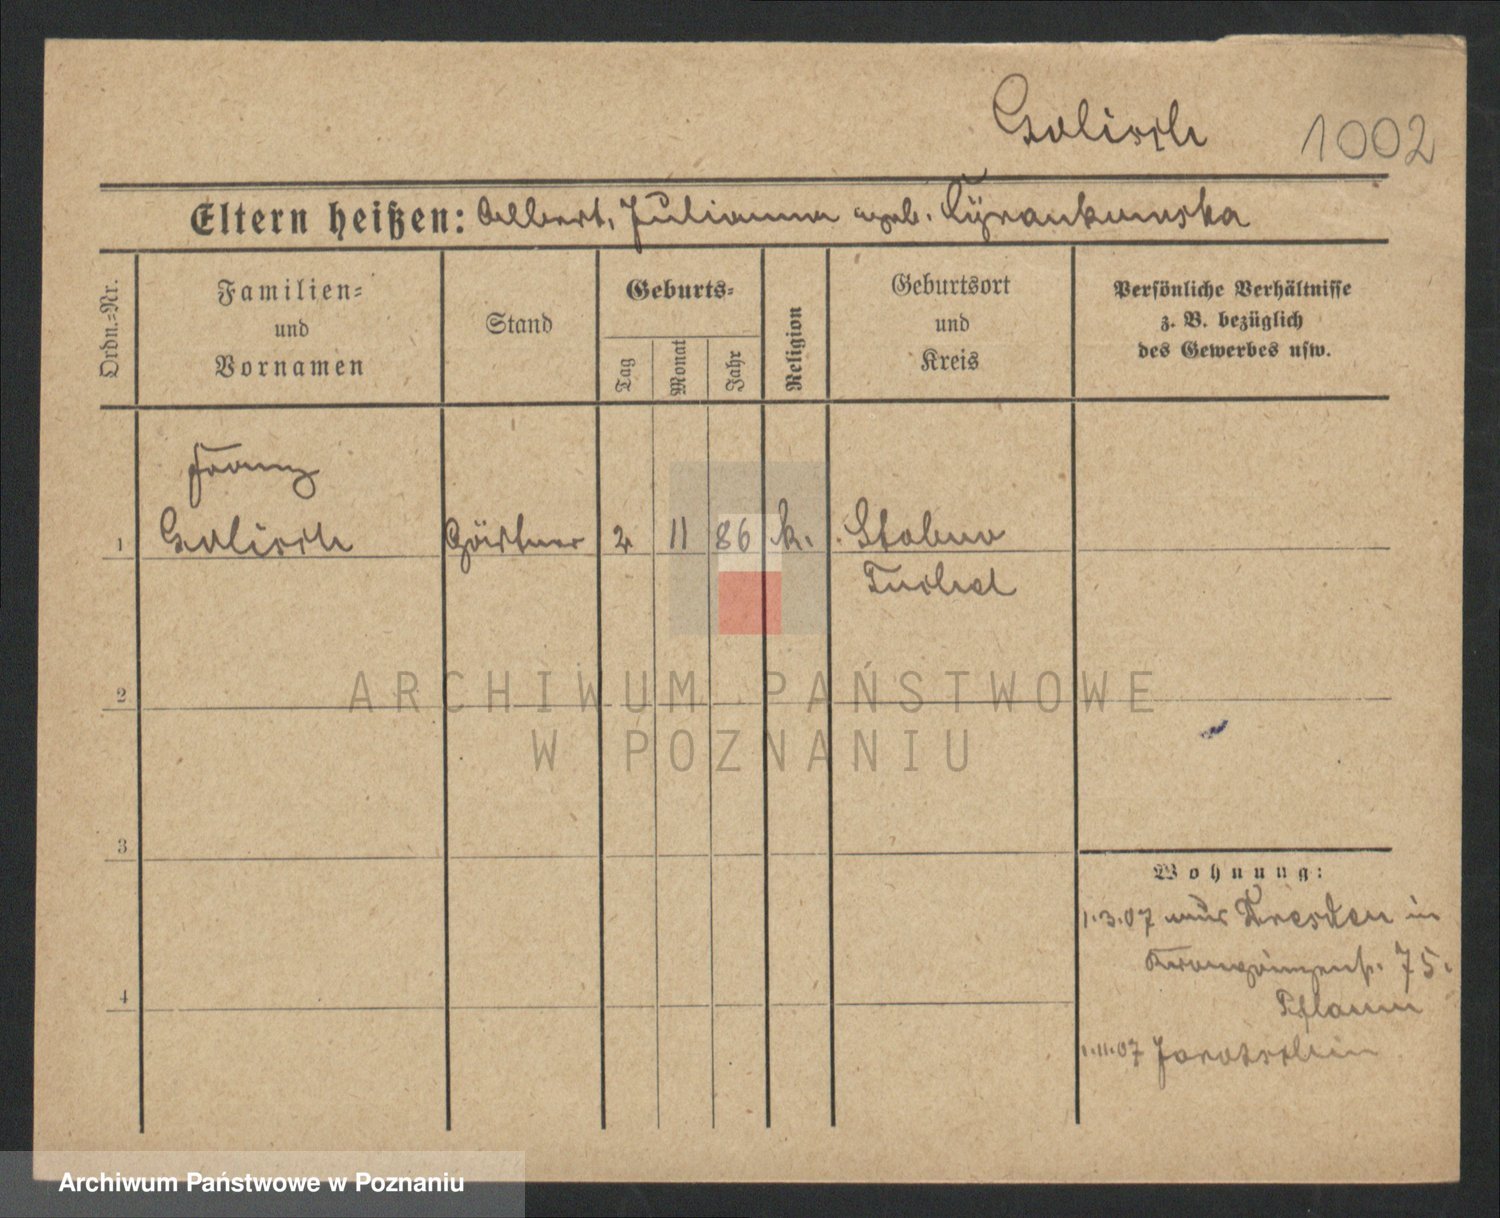 Golisch 1002
Eltern heißen: Albert, Julianna geb.
Ordn.-Nr.
Familien-
und
Vornamen
Stand
Geburts-
Tag
Monat
Jahr
Religion
Geburtsort
und
Kreis
Persönliche Verhältnisse
z. B. bezüglich
des Gewerbes usw.
Franz
1 Golisch Gärtner 2 11 86 k. Stobno
Tuchel
ARCHIWUM PAŃSTWOWE
W POZNANIU
2
3
4
Wohnung:
1.3.07 aus Dresden in
Kronprinzenstr. 75.
Pflaum
1.11.07 Jarotschin
Archiwum Państwowe w Poznaniu